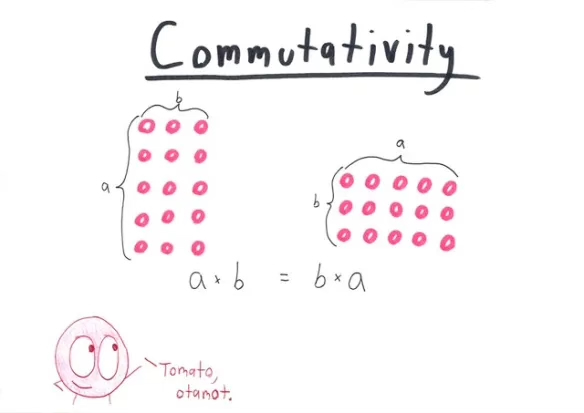 Commutativity
b
a
a
b
a × b = b × a
Tomato,
otamot.